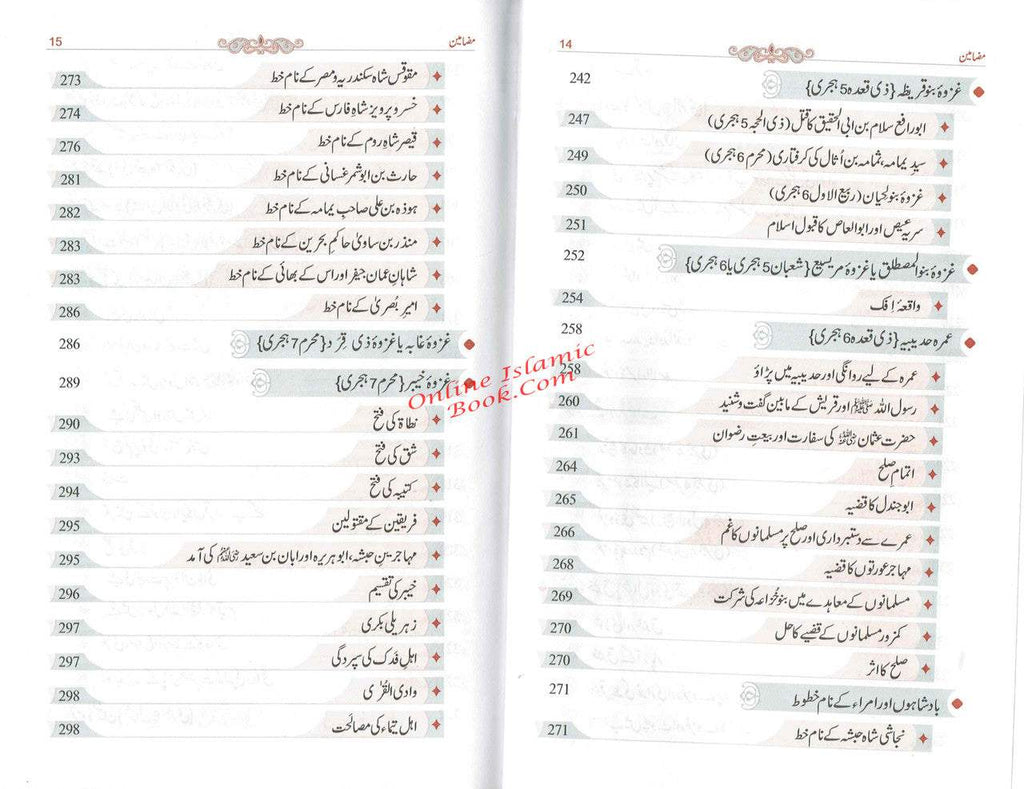 مضامین 14
غزوۂ بنو قریظہ {ذی قعدہ 5 ہجری} 242
ابو رافع سلام بن ابی الحقیق کا قتل (ذی الحجہ 5 ہجری) 247
سیدِ یمامہ، ثمامہ بن اُثال کی گرفتاری (محرم 6 ہجری) 249
غزوۂ بنو لحیان (ربیع الاول 6 ہجری) 250
سریۂ عیص اور ابو العاص کا قبول اسلام 251
غزوۂ بنو المصطلق یا غزوۂ مریسیع {شعبان 5 ہجری یا 6 ہجری} 252
واقعۂ اِفک 254
عمرہ حدیبیہ {ذی قعدہ 6 ہجری} 258
عمرہ کے لیے روانگی اور حدیبیہ میں پڑاؤ 258
رسول اللہ ﷺ اور قریش کے مابین گفت و شنید 260
حضرت عثمان رضی اللہ عنہ کی سفارت اور بیعتِ رضوان 261
اتمامِ صلح 264
ابو جندل کا قضیہ 265
عمرے سے دستبرداری اور صلح پر مسلمانوں کا غم 266
مہاجر عورتوں کا قضیہ 268
مسلمانوں کے معاہدے میں بنو خُزاعہ کی شرکت 269
کمزور مسلمانوں کے قضیے کا حل 270
صلح کا اثر 270
بادشاہوں اور امراء کے نام خطوط 271
نجاشی شاہ حبشہ کے نام خط 271
مضامین 15
مقوقس شاہ سکندریہ و مصر کے نام خط 273
خسرو پرویز شاہِ فارس کے نام خط 274
قیصر شاہِ روم کے نام خط 276
حارث بن ابو شمر غسانی کے نام خط 281
ہوذہ بن علی صاحبِ یمامہ کے نام خط 282
منذر بن ساویٰ حاکمِ بحرین کے نام خط 283
شاہانِ عمان جیفر اور اس کے بھائی کے نام خط 283
امیرِ بُصریٰ کے نام خط 286
غزوۂ غابہ یا غزوۂ ذی قَرَد {محرم 7 ہجری} 286
غزوۂ خیبر {محرم 7 ہجری} 289
نطاۃ کی فتح 290
شق کی فتح 293
کتیبہ کی فتح 294
فریقین کے مقتولین 295
مہاجرینِ حبشہ، ابو ہریرہ اور ابان بن سعید رضی اللہ عنہم کی آمد 295
خیبر کی تقسیم 296
زہریلی بکری 297
اہلِ فَدَک کی سپردگی 297
وادی القُریٰ 298
اہل تیماء کی مصالحت 298
Online Islamic
Book.Com